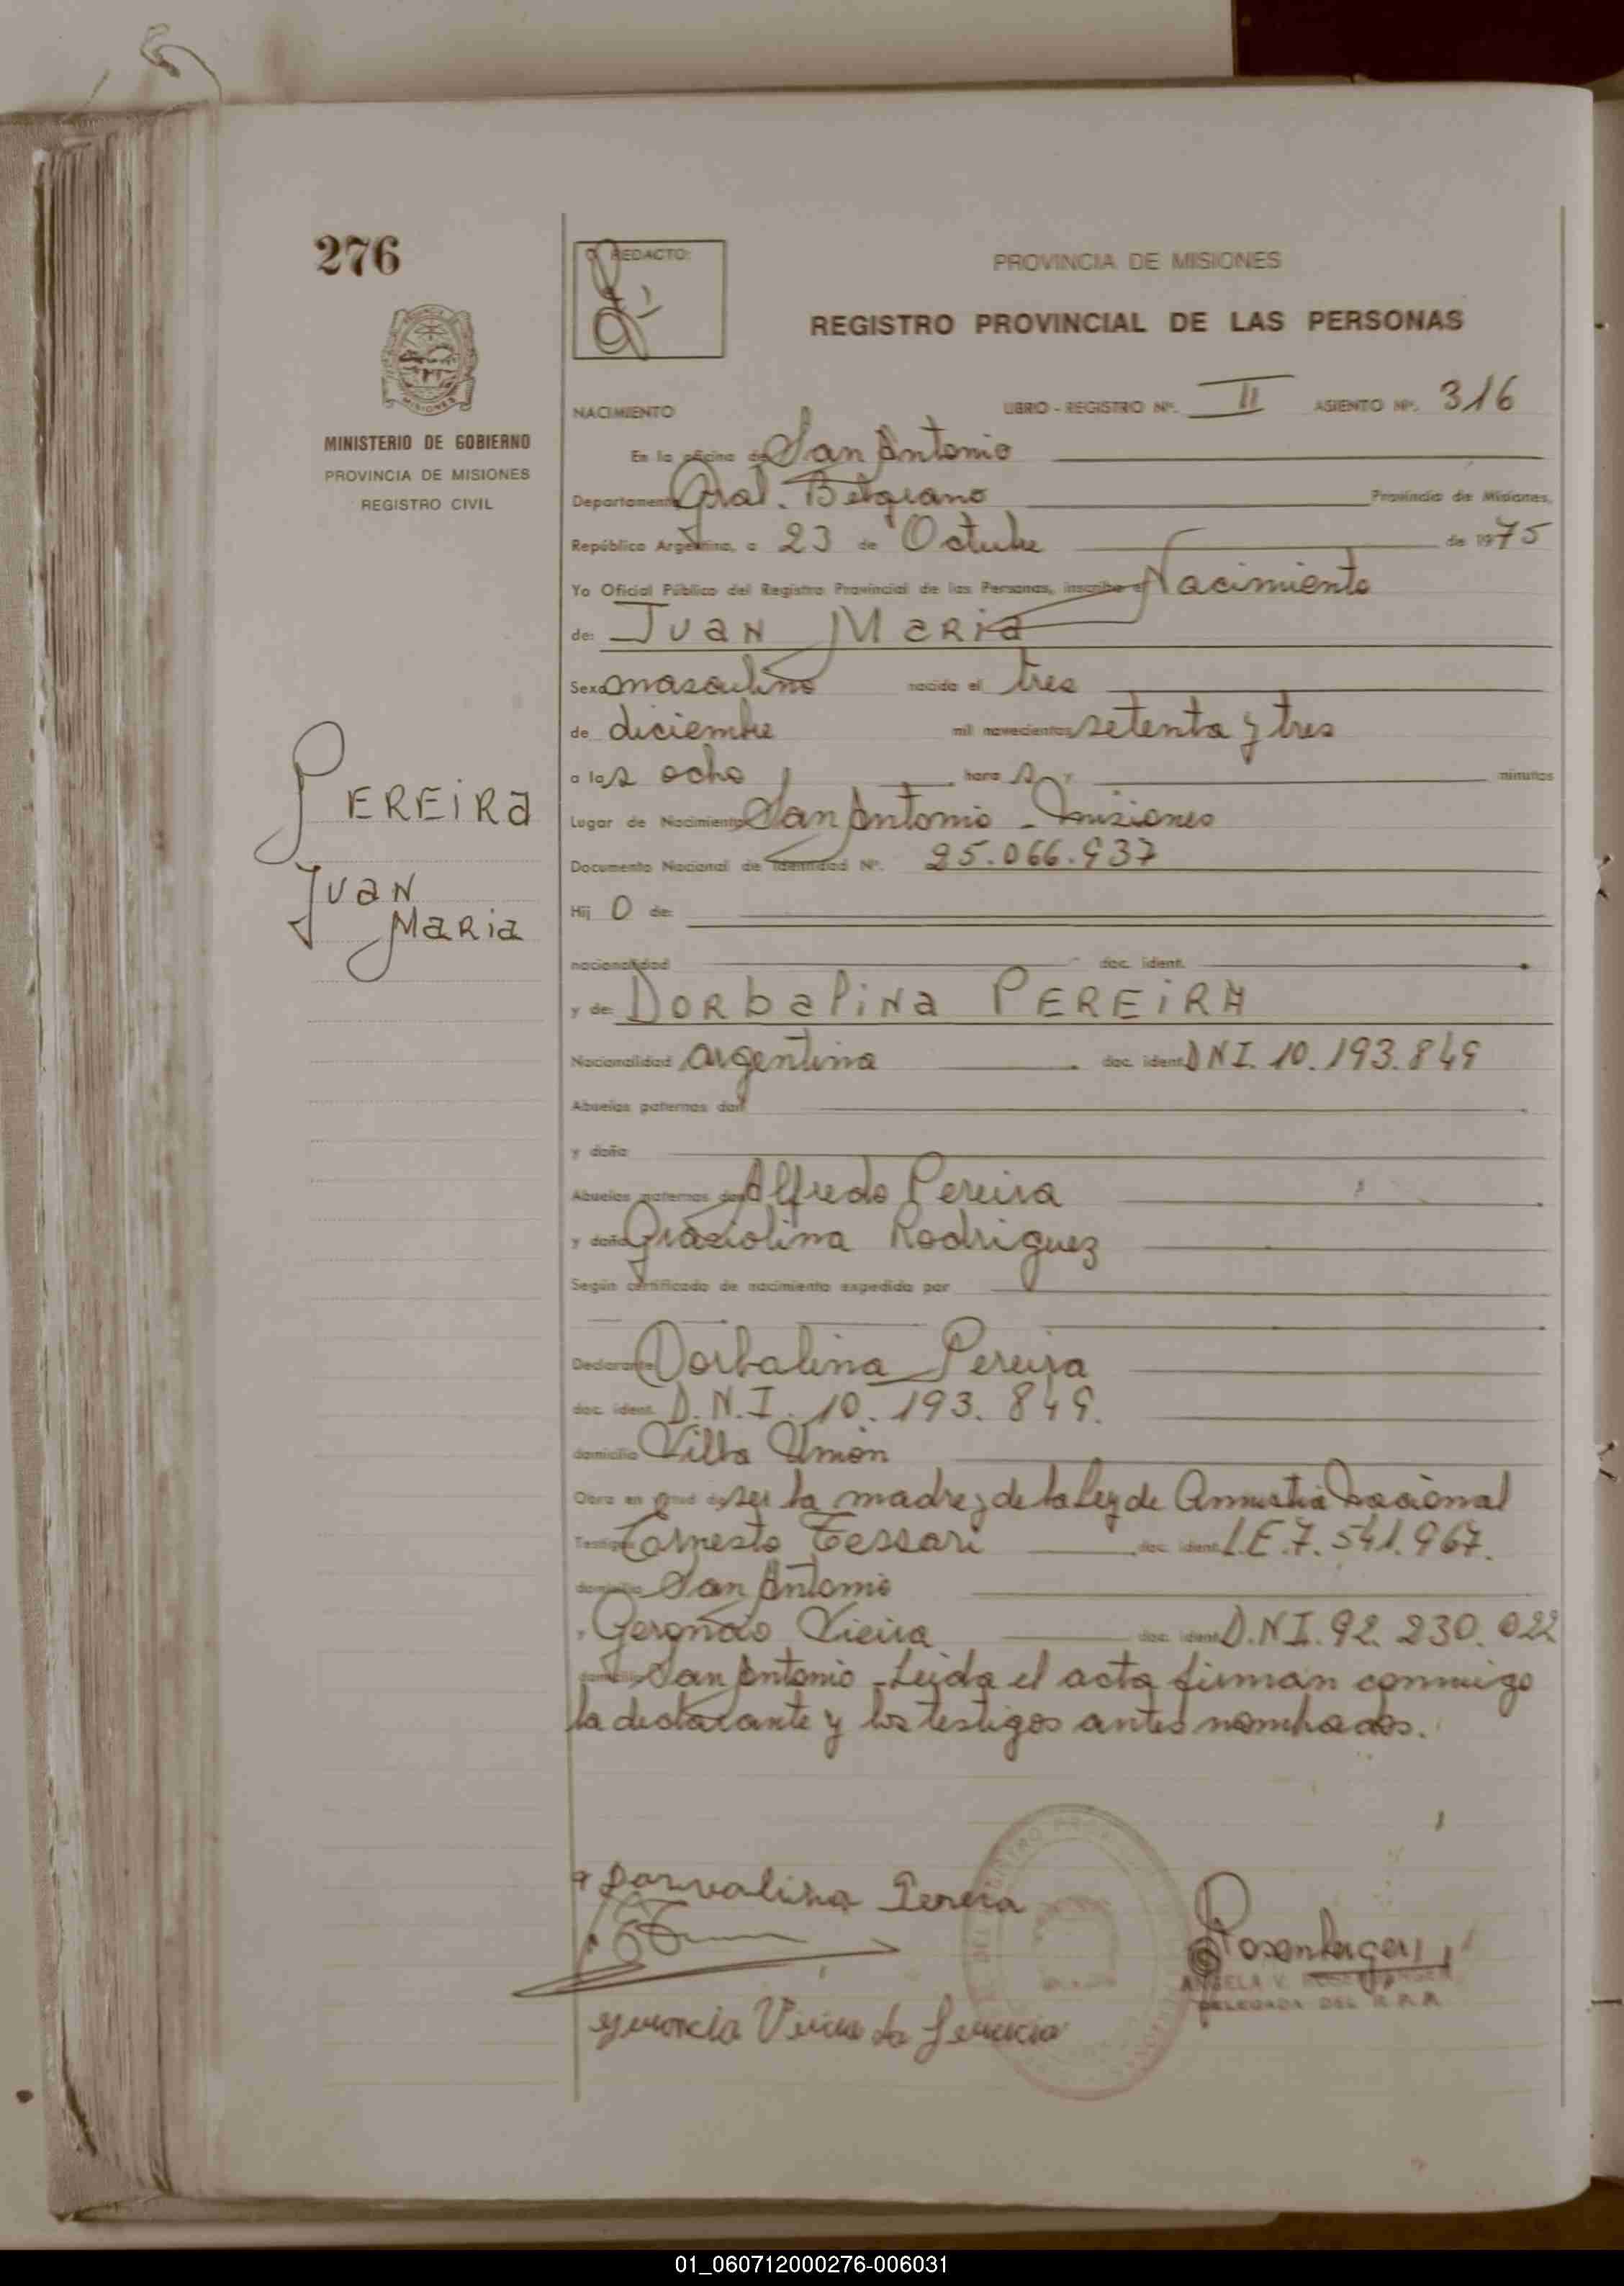 276
REDACTO:
PROVINCIA DE MISIONES
REGISTRO PROVINCIAL DE LAS PERSONAS
MINISTERIO DE GOBIERNO
PROVINCIA DE MISIONES
REGISTRO CIVIL
NACIMIENTO LIBRO - REGISTRO Nº. II ASIENTO Nº. 316
En la oficina de San Antonio
Departamento Gral. Belgrano Provincia de Misiones,
República Argentina, a 23 de Octubre de 1975
Yo Oficial Público del Registro Provincial de las Personas, inscribo el Nacimiento
de: Juan Maria
Sexo masculino nacido el tres
de diciembre mil novecientos setenta y tres
a las ocho hora s y minutos
Lugar de Nacimiento San Antonio - Misiones
Documento Nacional de Identidad Nº. 25.066.937
PEREIRA
Juan
Maria
Hij o de:
nacionalidad doc. ident.
y de: Dorbalina PEREIRA
Nacionalidad argentina doc. ident. DNI. 10.193.849
Abuelos paternos don
y doña
Abuelos maternos don Alfredo Pereira
y doña Graciolina Rodriguez
Según certificado de nacimiento expedido por
Declarante Dorbalina Pereira
doc. ident. D.N.I. 10.193.849.
domicilio Villa Unión
Obra en virtud de ser la madre y de la Ley de Amnistia Nacional
Testigos Ernesto Tessari doc. ident. L.E. 7.541.967.
domicilio San Antonio
y Vieira doc. ident. D.N.I. 92.230.022
domicilio San Antonio - Leida el acta firman conmigo
la declarante y los testigos antes nombrados.
Dorvalina Pereira
Rosenberger
ANGELA V. ROSENBERGER
DELEGADA DEL R.P.P.
01_060712000276-006031